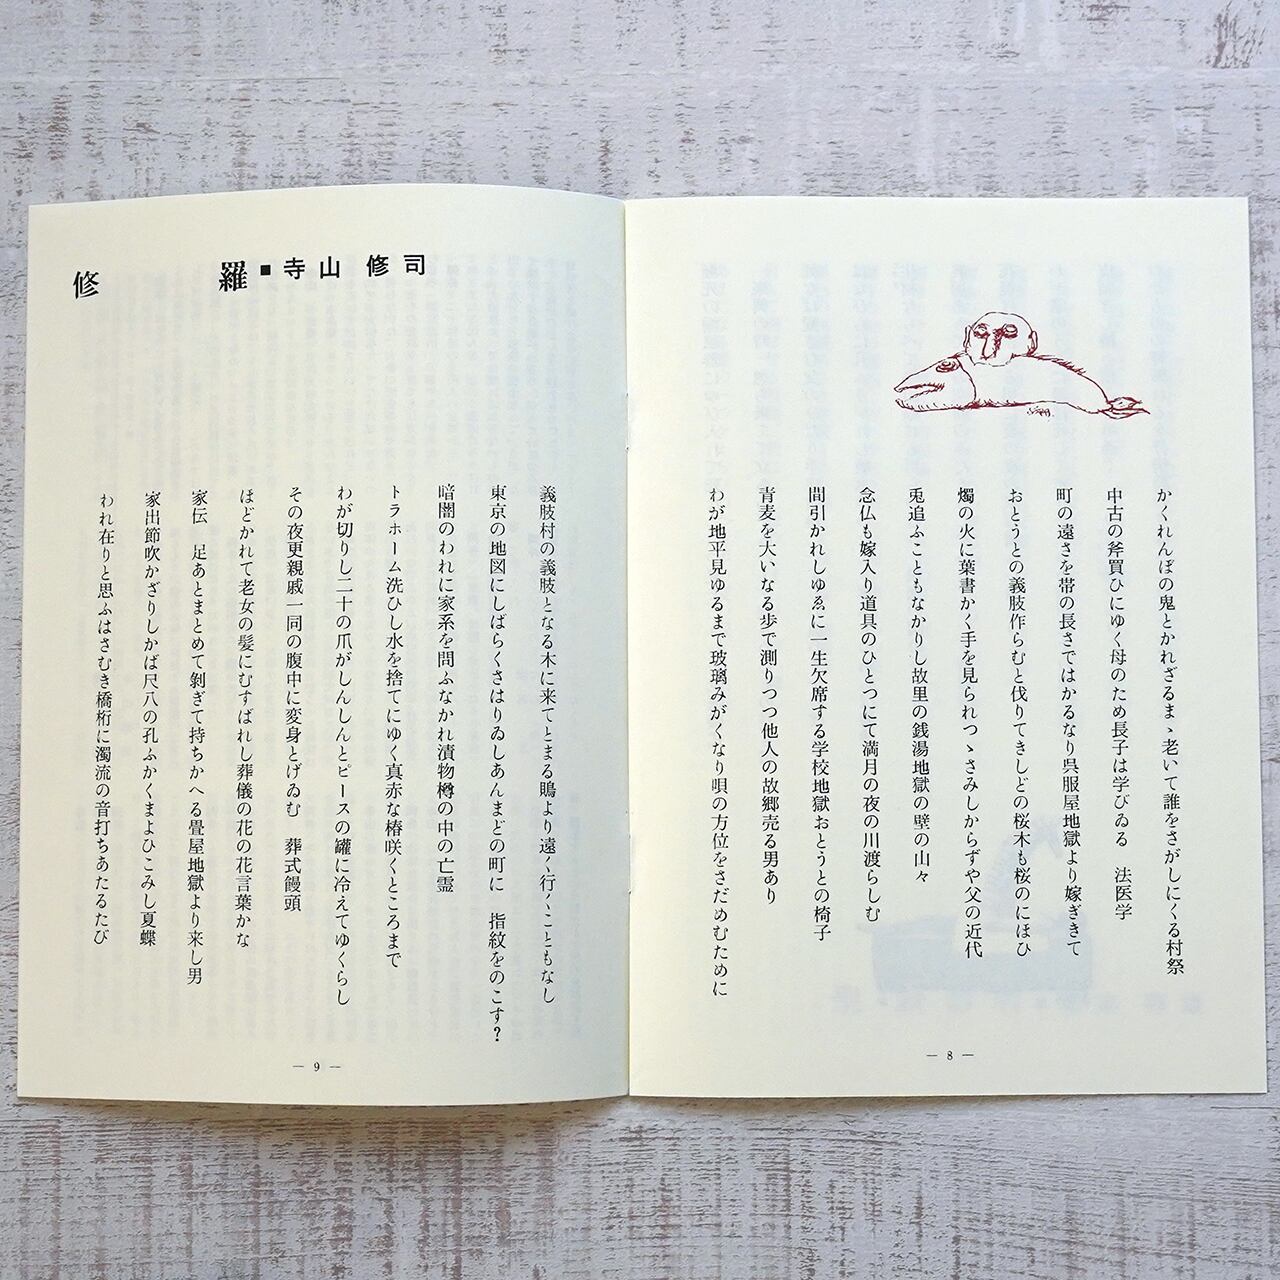 かくれんぼの鬼とかれざるまゝ老いて誰をさがしにくる村祭
中古の斧買ひにゆく母のため長子は学びゐる　法医学
町の遠さを帯の長さではかるなり呉服屋地獄より嫁ぎきて
おとうとの義肢作らむと伐りてきしどの桜木も桜のにほひ
燭の火に葉書かく手を見られつゝさみしからずや父の近代
兎追ふこともなかりし故里の銭湯地獄の壁の山々
念仏も嫁入り道具のひとつにて満月の夜の川渡らしむ
間引かれしゆゑに一生欠席する学校地獄おとうとの椅子
青麦を大いなる歩で測りつつ他人の故郷売る男あり
わが地平見ゆるまで玻璃みがくなり唄の方位をさだめむために
— 8 —
修羅■寺山修司
義肢村の義肢となる木に来てとまる鵙より遠く行くこともなし
東京の地図にしばらくさはりゐしあんまどの町に　指紋をのこす?
暗闇のわれに家系を問ふなかれ漬物樽の中の亡霊
トラホーム洗ひし水を捨てにゆく真赤な椿咲くところまで
わが切りし二十の爪がしんしんとピースの罐に冷えてゆくらし
その夜更親戚一同の腹中に変身とげゐむ　葬式饅頭
ほどかれて老女の髪にむすばれし葬儀の花の花言葉かな
家伝　足あとまとめて剝ぎて持ちかへる畳屋地獄より来し男
家出節吹かざりしかば尺八の孔ふかくまよひこみし夏蝶
われ在りと思ふはさむき橋桁に濁流の音打ちあたるたび
— 9 —